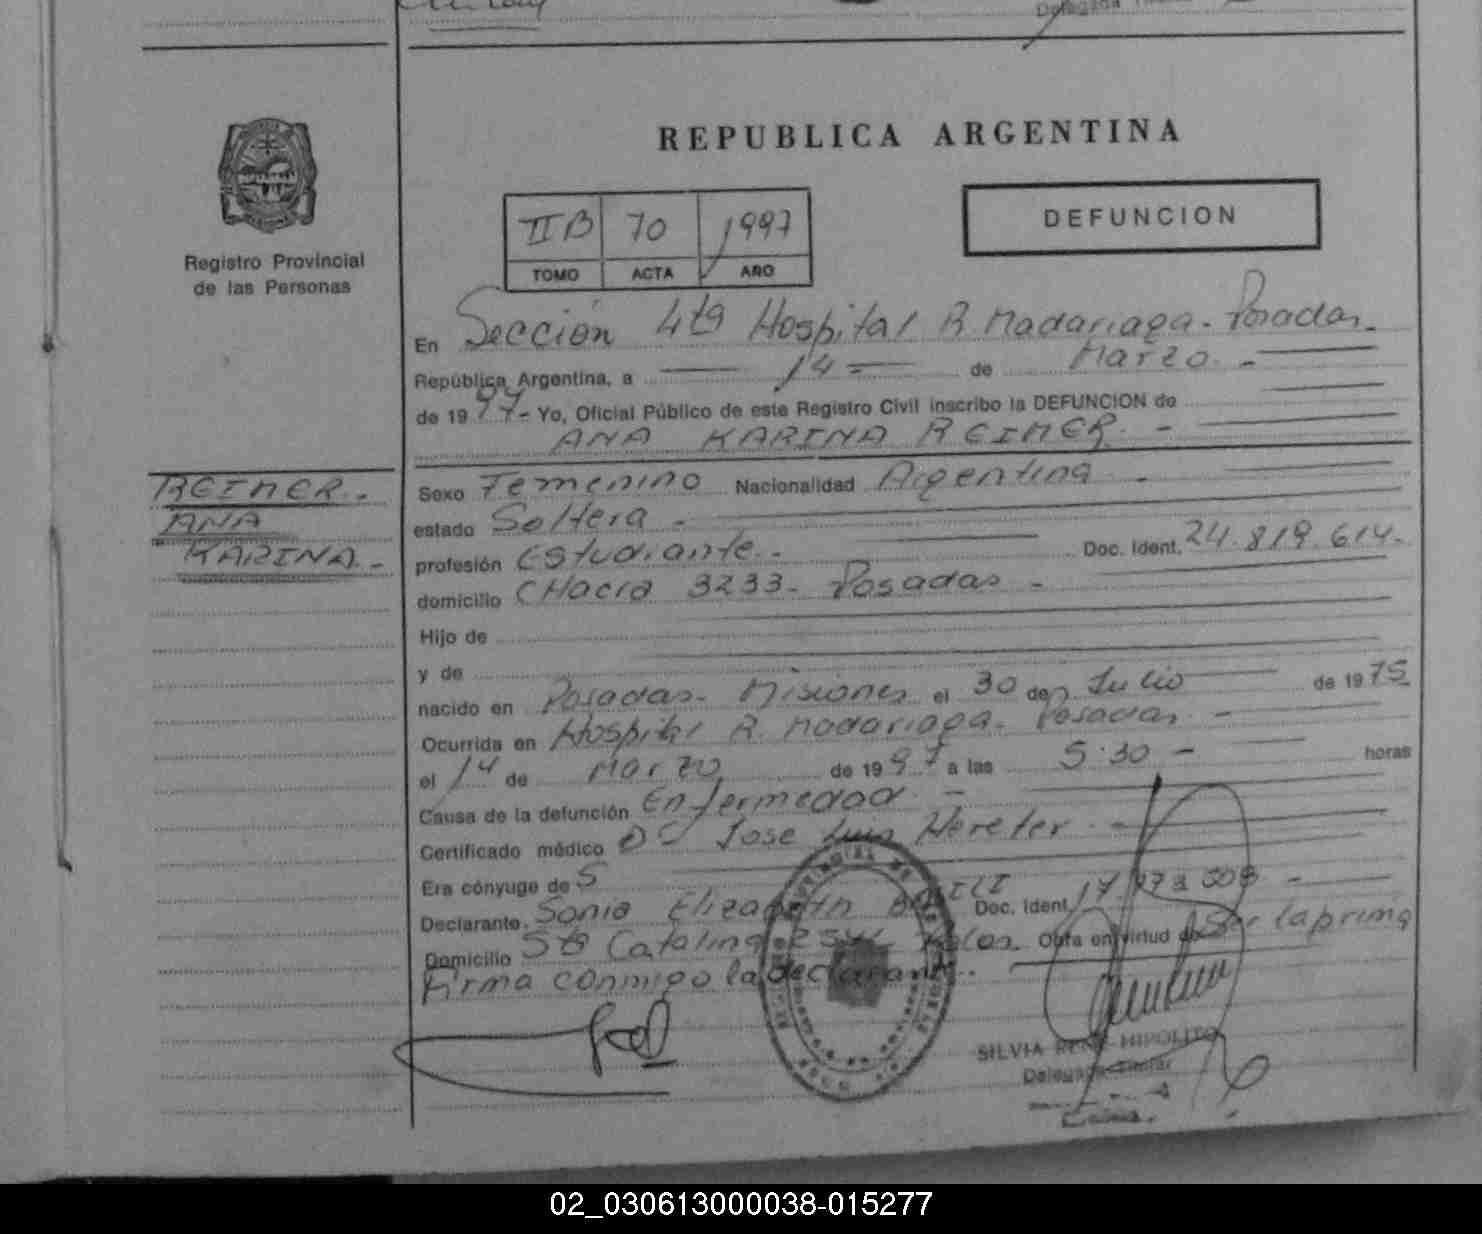 REPUBLICA ARGENTINA
Registro Provincial
de las Personas
IIB 70 1997
TOMO ACTA AÑO
DEFUNCION
En Sección 4ta Hospital R. Madariaga - Posadas -
República Argentina, a 14 de Marzo -
de 1997 - Yo, Oficial Público de este Registro Civil inscribo la DEFUNCION de
ANA KARINA REIMER. -
REIMER.
ANA
KARINA. -
Sexo Femenino Nacionalidad Argentina -
estado Soltera -
profesión Estudiante. - Doc. Ident. 24.819.614 -
domicilio CHacra 3233 - Posadas -
Hijo de
y de
nacido en Posadas - Misiones el 30 de Julio de 1975
Ocurrida en Hospital R. Madariaga - Posadas -
el 14 de Marzo de 1997 a las 5.30 - horas
Causa de la defunción Enfermedad -
Certificado médico Jose Luis
Era cónyuge de
Declarante. Sonia Elizabeth Doc. Ident. 17. 508 -
Domicilio Sta Catalina Obra en virtud de Ser la prima
Firma conmigo la declarante.
SILVIA HIPOLITO
Delegada Titular
02_030613000038-015277